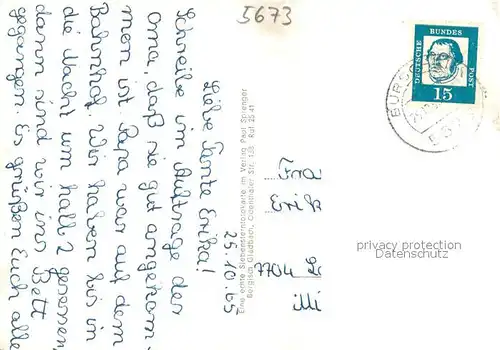 5673
25.10.65
Liebe Tante Erika!
Schreibe im Auftrage der
Oma, daß sie gut angekom-
men ist. Papa war auf dem
Bahnhof. Wir haben bis in
die Nacht um halb 2 gesessen,
dann sind wir ins Bett
gegangen. Es grüßen Euch alle
Eine echte Siebensternfotokarte im Verlag Paul Sprenger
Bergisch Gladbach, Odenthaler Str. 138 Ruf 25 41
DEUTSCHE
BUNDES
POST
15
BURS
Frau
Erik
7704
illi
privacy protection
Datenschutz